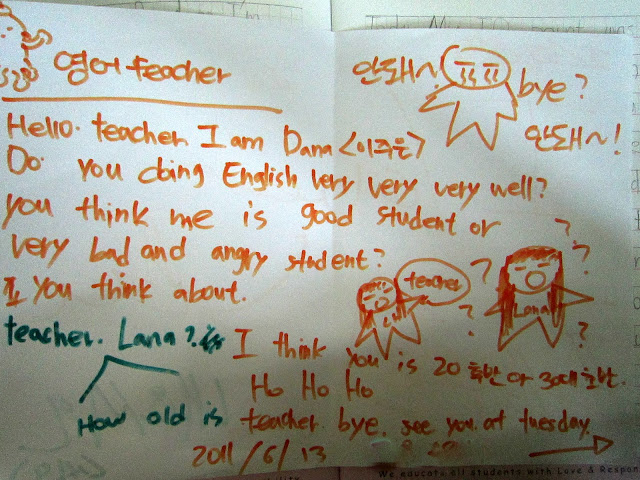 영어 teacher
안돼~ ㅠㅠ bye?
안돼~!
Hello. teacher I am Dana <이주은>
Do you doing English very very very well?
you think me is good student or
very bad and angry student?
you think about.
teacher
Lana
? ? ? ? ?
teacher. Lana?
I think you is 20 후반 아 30대 초반.
Ho Ho Ho
How old is teacher bye. see you at tuesday.
2011/6/13
We educate all students with Love & Respon